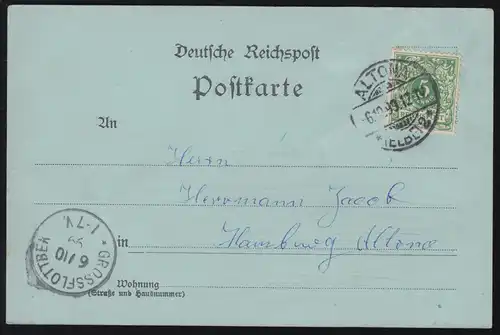 Deutsche Reichspost
Postkarte
ALTONA
6.10.99.12
* (ELBE) 2 *
5
An
Herrn
Herrmann Jacob
in Hamburg Altona
* GROSSFLOTTBEK
6/10
99
1-7V.
Wohnung
(Straße und Hausnummer)